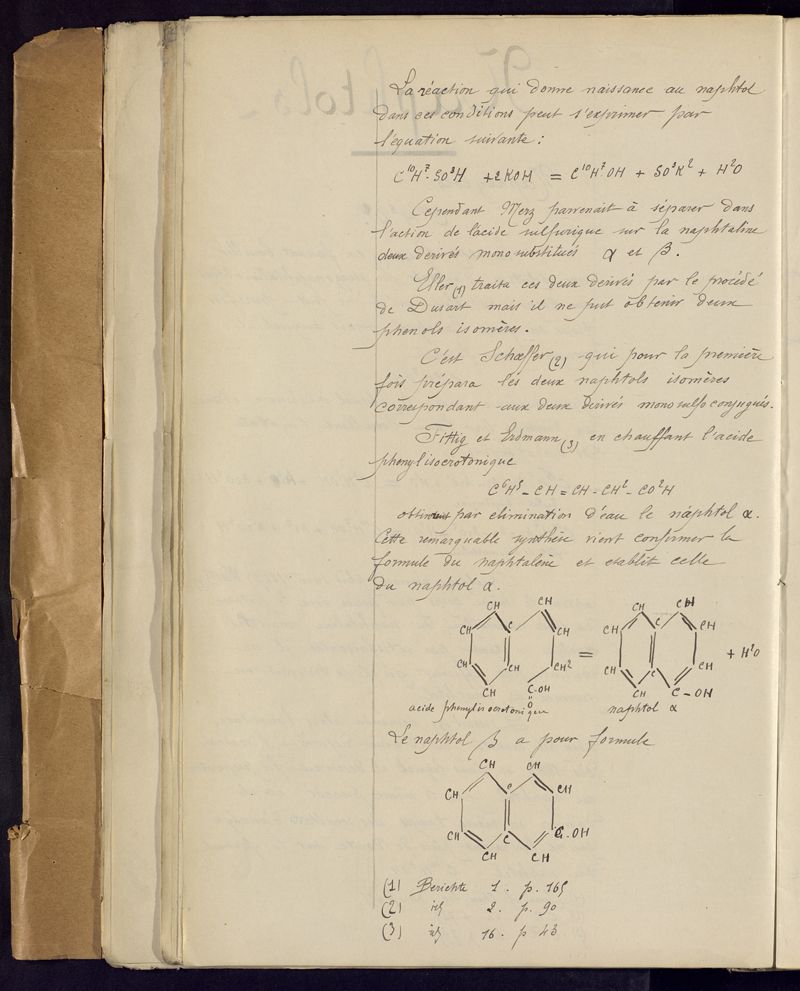 La réaction qui donne naissance au naphtol
dans ces conditions peut s'exprimer par
l'équation suivante :
C¹⁰H⁷-SO³H + 2KOH = C¹⁰H⁷OH + SO³K² + H²O
Cependant Merz parvenait à séparer dans
l'action de l'acide sulfurique sur la naphtaline
deux derivés mono substitués α et β.
Eller (1) traita ces deux derivés par le procédé
de Dusart mais il ne put obtenir deux
phenols isomères.
C'est Schæffer (2) qui pour la première
fois prépara les deux naphtols isomères
correspondant aux deux derivés mono sulfo conjugués.
Fittig et Erdmann (3) en chauffant l'acide
phenylisocrotonique
C⁶H⁵ - CH = CH - CH² - CO²H
par elimination d'eau le naphtol α.
Cette remarquable synthèse vient confirmer la
formule du naphtalène et etablit celle
du naphtol α.
CH CH CH CH
CH C CH CH C CH
= + H²O
CH CH CH² CH C CH
CH C-OH CH C-OH
O
acide phenylisocrotonique naphtol α
Le naphtol β a pour formule
CH CH
CH C CH
CH C C-OH
CH CH
(1) Berichte 1. p. 165
(2) id 2. p. 90
(3) id 16. p 43